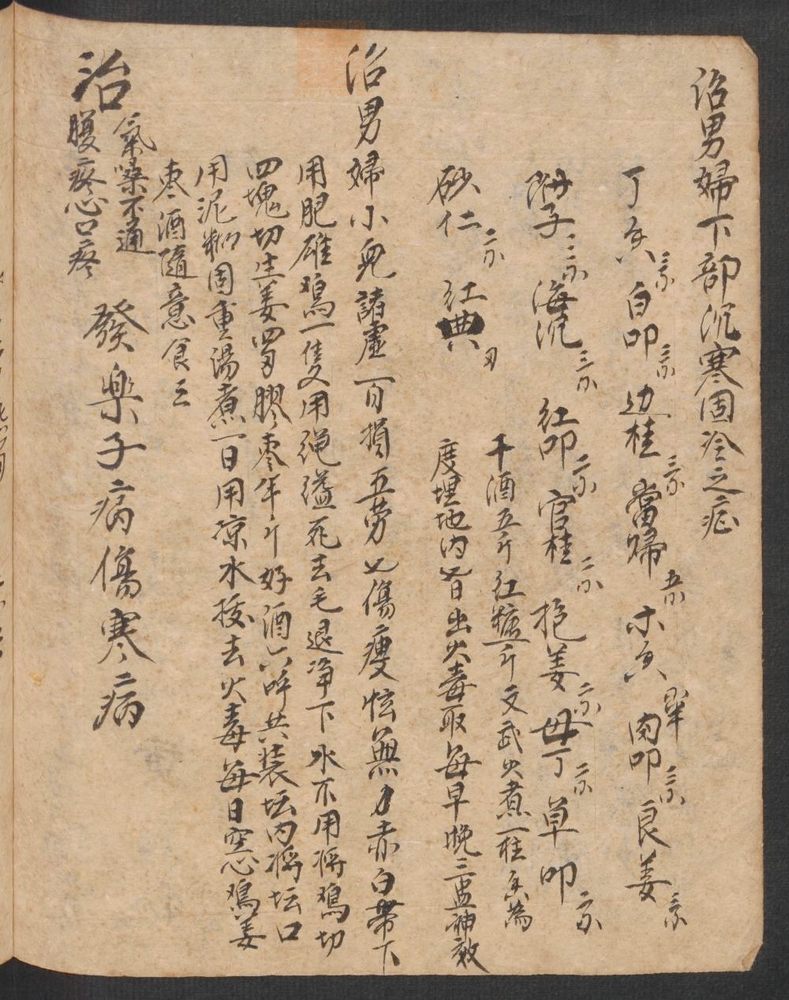 治男婦下部沉寒固冷之症
丁香 三分 白叩 三分 边桂 三分 當歸 五分 木香 肉叩 三分 良姜 三分
附子 三分 海沉 三分 紅叩 二分 官桂 二分 炮姜 二分 母丁 二分 草叩 二分
砂仁 二分 紅典
干酒五斤紅糖一斤文武火煮一柱香為
度埋地內七日出火毒取每早晚三盅神效
治男婦小兒諸虛百損五劳七傷瘦怯無力赤白帶下
用肥雄鳮一隻用绳縊死去毛退净下水不用將鳮切
四塊切生姜四兩膠枣半斤好酒六斤共装坛内將坛口
用泥糊固重湯煮一日用凉水拔去火毒每日空心鳮姜
枣酒隨意食之
治 氣嗓不通
腹疼心口疼
發樂子病傷寒病